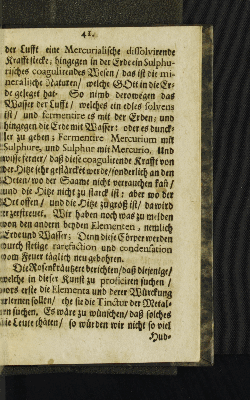 41.
der Lufft eine Mercurialische dissolvirende
Krafft stecke; hingegen in der Erde ein Sulphu-
risches coagulirendes Wesen/ das ist die mi-
neralische Naturen/ welche GOtt in die Er-
de gelegt hat. So nimb derowegen das
Wasser der Lufft/ welches ein edles solvens
ist/ und fermentire es mit der Erden: und
hingegen die Erde mit Wasser: oder es dunck-
ler zu geben; Fermentire Mercurium mit
Sulphure, und Sulphur mit Mercurio. Und
wisse ferner/ daß diese coagulirende Krafft von
der Hitze sehr gestärcket werde/ sonderlich an den
Orten/ wo der Saame nicht verrauchen kan/
und die Hitze nicht zu starck ist: aber wo der
Ort offen/ und die Hitze zu groß ist/ da wird
er zerstreuet. Wir haben noch was zu melden
von den andern beyden Elementen, nemlich
Erde und Wasser: Denn diese Cörper werden
durch stetige rarefaction und condensation
vom Feuer täglich neu gebohren.
Die Rosenkräutzer berichten/ daß diejenige/
welche in dieser Kunst zu proficiren suchen/
vors erste die Elementa und derer Würckung
erlernen sollen/ ehe sie die Tinctur der Metal-
len suchen. Es wäre zu wünschen/ daß solches
die Leute thäten/ so würden wir nicht so viel
Hud-